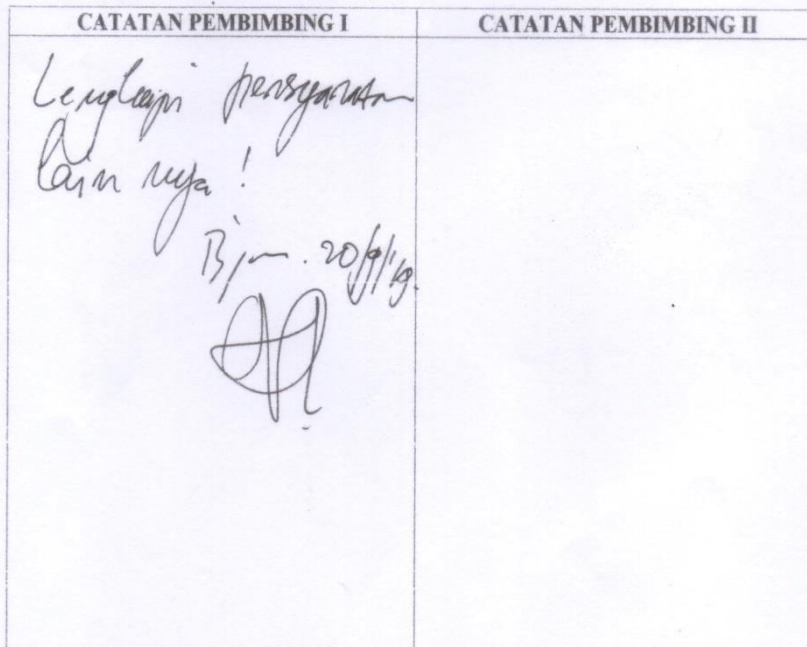 CATATAN PEMBIMBING I
CATATAN PEMBIMBING II
Lengkapi persyaratan
lain nya !
Bjm. 20/9/19.